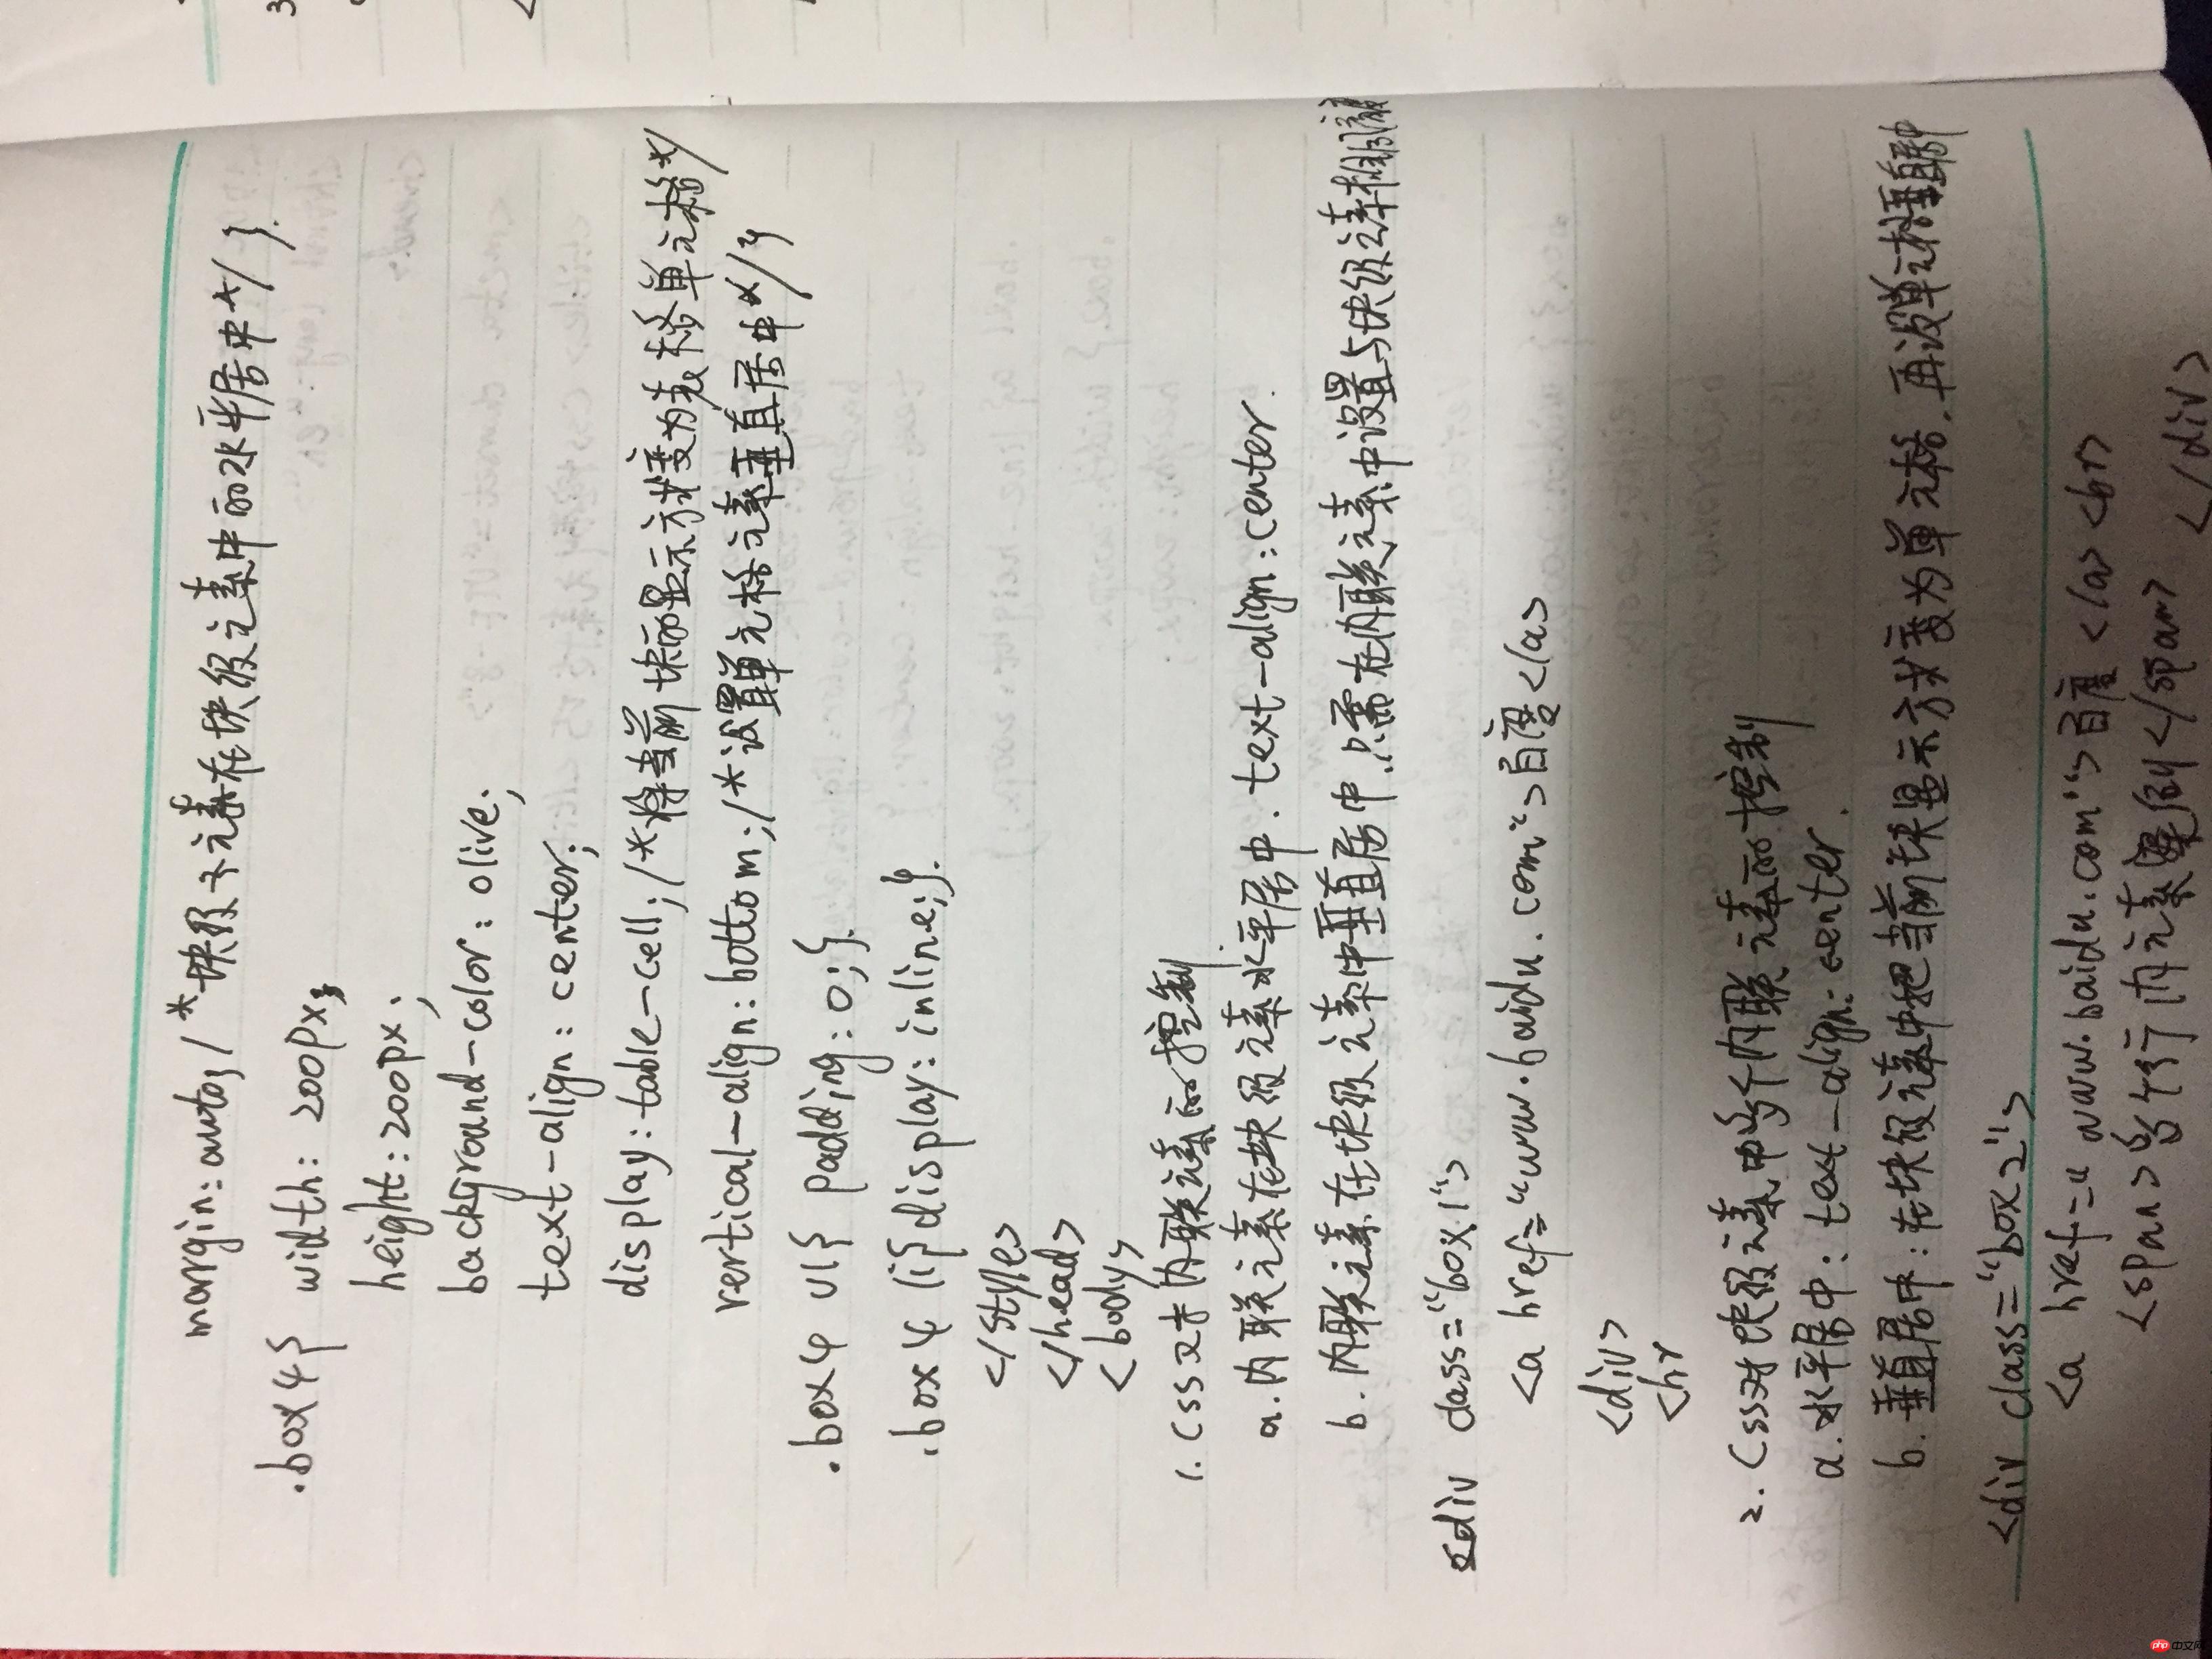 margin:auto;/*块级元素在块级元素中的水平居中*/}.
.box4{ width:200px;
height:200px;
background-color:olive;
text-align:center;
display:table-cell;/*将当前块的显示方式变为表格单元格*/
vertical-align:bottom;/*设置单元格元素垂直居中*/}
.box4 ul{ padding:0;}.
.box4 li{display:inline;}.
</style>
</head>
<body>
1.CSS对内联元素的控制
a.内联元素在块级元素水平居中.text-align:center.
b.内联元素在块级元素中垂直居中.只需在内联元素中设置与块级元素相同的
<div class="box1">
<a href="www.baidu.com">百度</a>
<div>
<hr
2.CSS对块级元素中多个内联元素的控制
a.水平居中:text-align:center.
b.垂直居中:在块级元素中把当前块显示方式变为单元格.再设单元格垂直居中
<div class="box2">
<a href="www.baidu.com">百度</a><br>
<span>多行行内元素案例</span>
</div>
php中文网